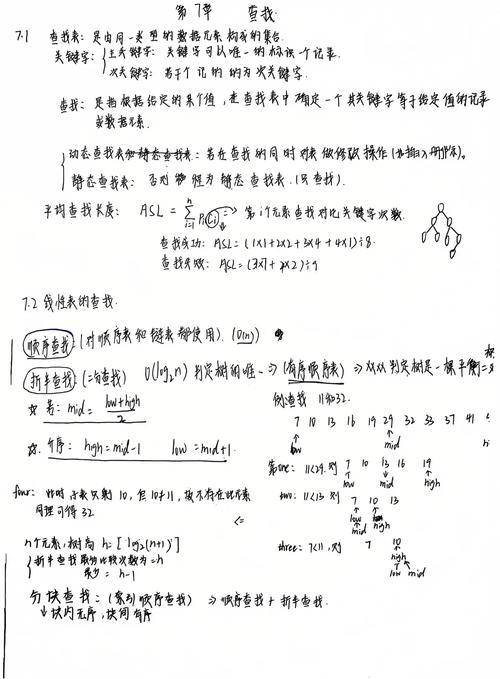 第7章 查找.
7.1 查找表: 是由同一类型的数据元素构成的集合.
关键字: 主关键字: 关键字可以唯一的标识一个记录.
次关键字: 若干个记的的为次关键字.
查找: 是指根据给定的某个值, 在查找表中确定一个其关键字等于给定值的记录
或数据元素.
动态查找表: 若在查找的同时对表做修改操作(如插入册除).
静态查找表: 否则 称为静态查找表.(只查找).
平均查找长度: ASL = n∑i=1 PiCi → 第i个元素查找对比关键字次数.
查找成功: ASL=(1×1+2×2+3×4+4×1)÷8
查找失败: ASL=(3×7+4×2)÷9
7.2 线性表的查找.
顺序查找: (对顺序表和链表都使用). (O(n))
折半查找: (二分查找) O(log₂n) 判定树的唯一 ⇒ (有序顺序表) ⇒ 判定树是一棵平衡二叉
☆ 若: mid = low+high / 2
例: 查找 11和32.
7 10 13 16 19 29 32 33 37 41
low mid
☆ 有序: high=mid-1 low=mid+1.
第one: 11<29. 则 7 10 13 16 19
low mid high
four: 此时 只剩 10, 但 10≠11, 故不存在此元素
同理可得 32
two: 11<13 则 7 10 13
low mid high
n个元素, 树高 h=[log₂(n+1)]
折半查找最多比较次数为=h
最少= h-1
three: 7<11, 则 7 10
high
low mid
分块查找: (索引顺序查找) ⇒ 顺序查找+折半查找.
↓块内无序, 块间有序